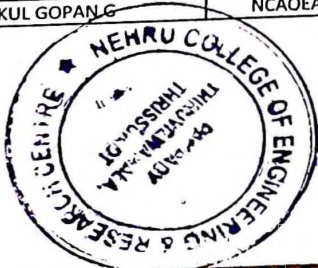 KUL GOPAN G
NCAOEA
★ NEHRU COLLEGE OF ENGINEERING & RESEARCH CENTRE
PAMPADY
THIRUVILWAMALA,
THRISSUR DT